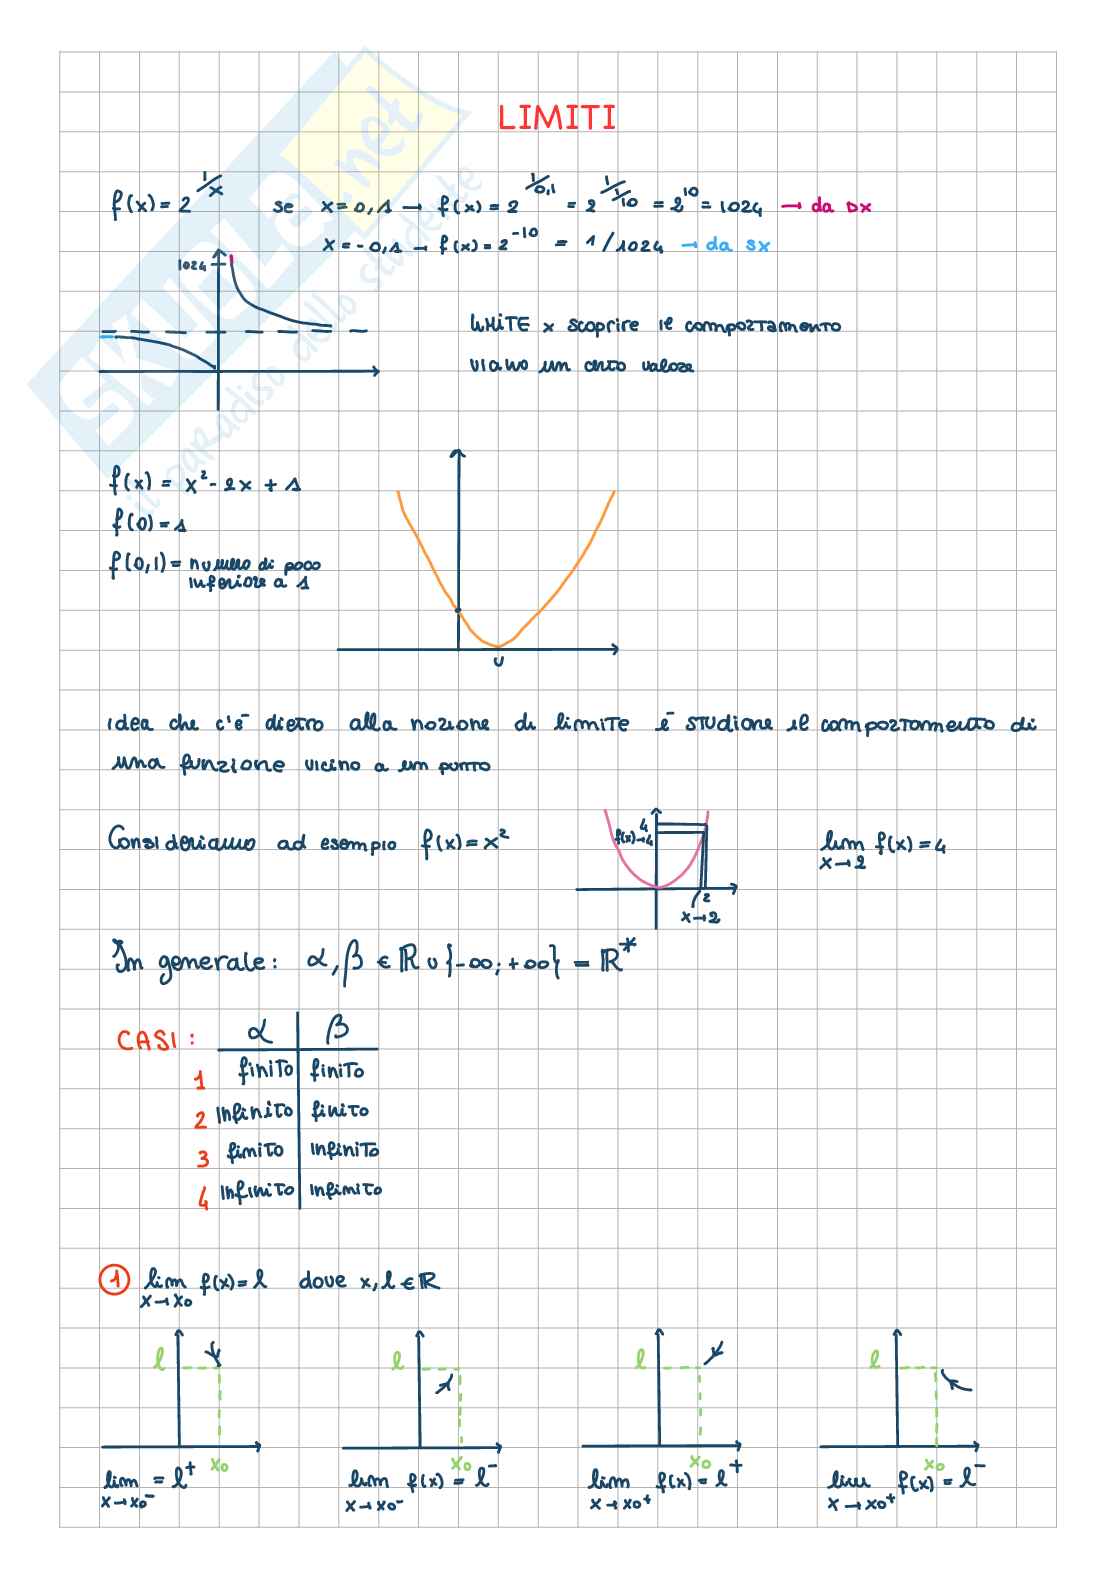 LIMITI
f(x) = 2^1/x se x = 0,1 → f(x) = 2^1/0,1 = 2^1/1/10 = 2^10 = 1024 → da DX
x = -0,1 → f(x) = 2^-10 = 1/1024 → da SX
1024
LIMITE x scoprire il comportamento
vicino un certo valore
f(x) = x² - 2x + 1
f(0) = 1
f(0,1) = numero di poco
inferiore a 1
V
idea che c'è dietro alla nozione di limite è studiare il comportamento di
una funzione vicino a un punto
Consideriamo ad esempio f(x) = x²
4
f(x)→4
2
x→2
lim f(x) = 4
x→2
In generale: α, β ∈ ℝ ∪ {-∞; +∞} = ℝ*
CASI: α β
1 finito finito
2 infinito finito
3 finito infinito
4 infinito infinito
1 lim f(x) = l dove x, l ∈ ℝ
x→x0
l l l l
x0 x0 x0 x0
lim = l⁺ lim f(x) = l⁻ lim f(x) = l⁺ lim f(x) = l⁻
x→x0⁻ x→x0⁻ x→x0⁺ x→x0⁺
SKUOLA.net
il paradiso dello studente